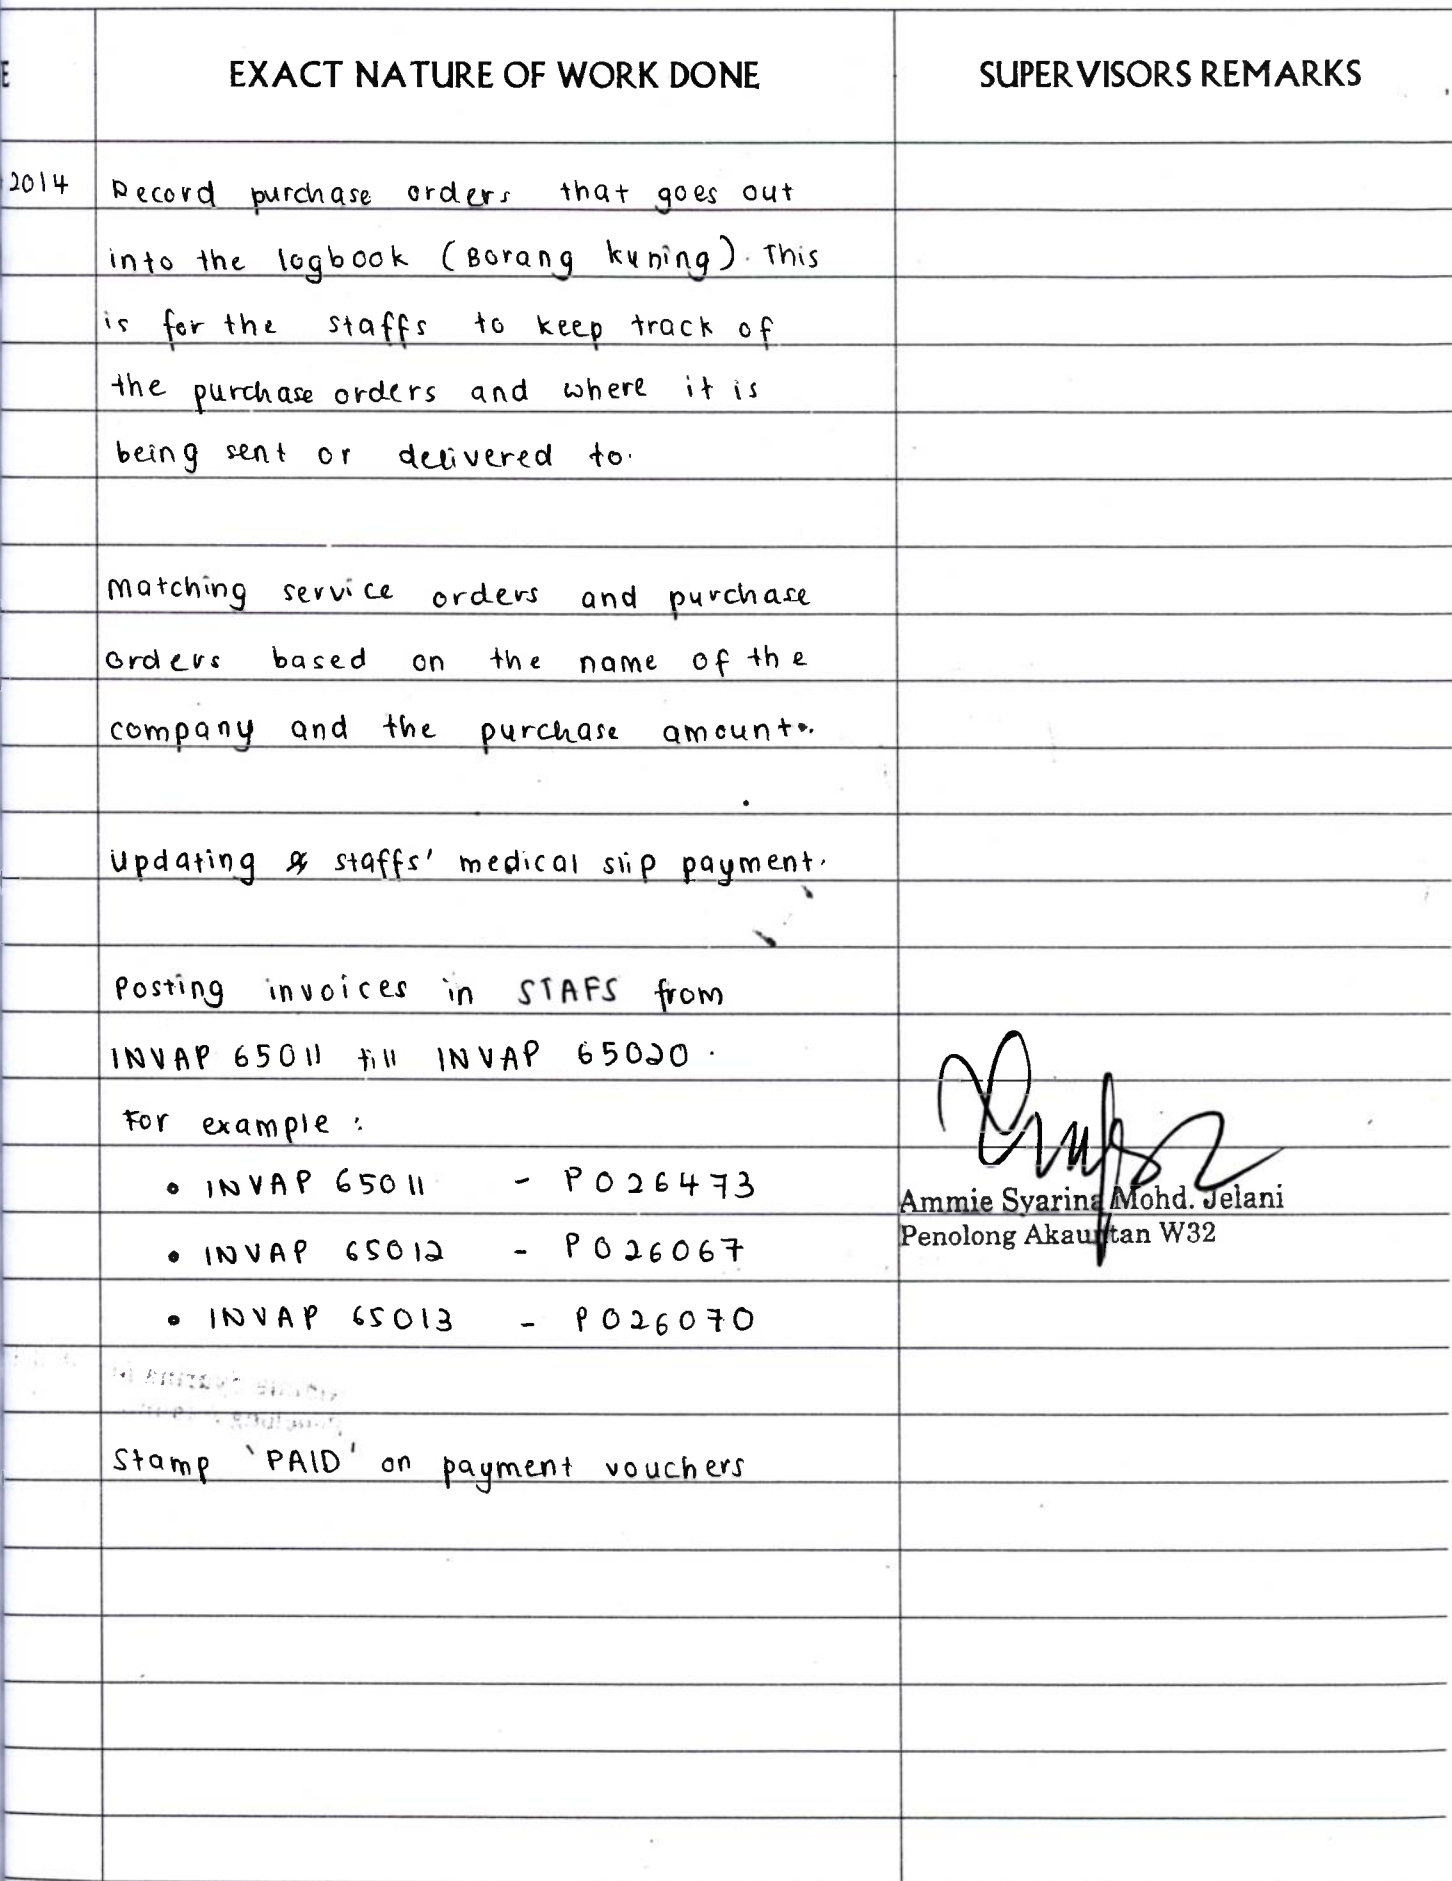 E
EXACT NATURE OF WORK DONE
SUPERVISORS REMARKS
2014
Record purchase orders that goes out
into the logbook (Borang kuning). This
is for the staffs to keep track of
the purchase orders and where it is
being sent or delivered to.
Matching service orders and purchase
orders based on the name of the
company and the purchase amount.
Updating staffs' medical slip payment.
Posting invoices in STAFS from
INVAP 65011 till INVAP 65020.
For example:
• INVAP 65011 - PO26473
• INVAP 65012 - PO26067
• INVAP 65013 - PO26070
Ammie Syarina Mohd. Jelani
Penolong Akauntan W32
Stamp 'PAID' on payment vouchers